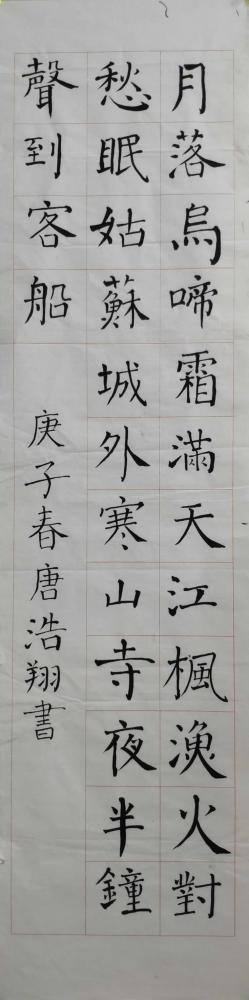 月落烏啼霜滿天江楓漁火對
愁眠姑蘇城外寒山寺夜半鐘
聲到客船
庚子春唐浩翔書